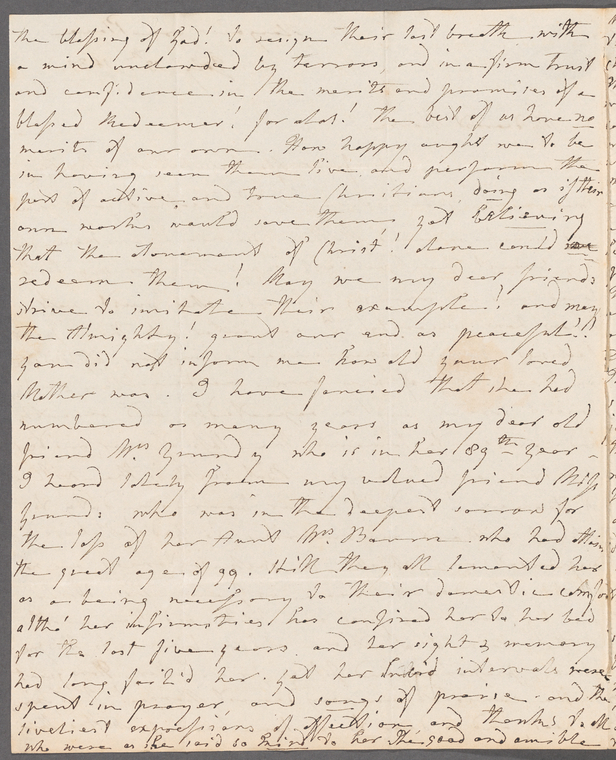 the blessing of God! to resign their last breath with
a mind unclouded by terrors and in a firm trust
and confidence in the merits and promises of a
blessed Redeemer! for alas! the best of us have no
merits of our own. How happy ought we to be
in having seen them live and perform the
part of active and true Christians, doing as if their
own works would save them, yet believing
that the atonement of Christ! alone could
redeem them! May we my dear friends
strive to imitate their example! and may
the Almighty! grant our end as peaceful!!
you did not inform me how old your loved
Mother was. I have fancied that she had
numbered as many years as my dear old
friend Mrs who is in her 89th year -
I heard lately from my valued friend Miss
who was in the deepest sorrow for
the loss of her Aunt Mrs who had attain
the great age of 99. Still they all lamented her
as a being necessary to their domestic comfort
altho' her infirmities has confined her to her bed
for the last five years. and her sight & memory
had long fail'd her. yet her lucid intervals were
spent in prayer, and songs of praise. and the
liveliest expressions of affection and thanks to all
who were as she said so kind to her the good and amible